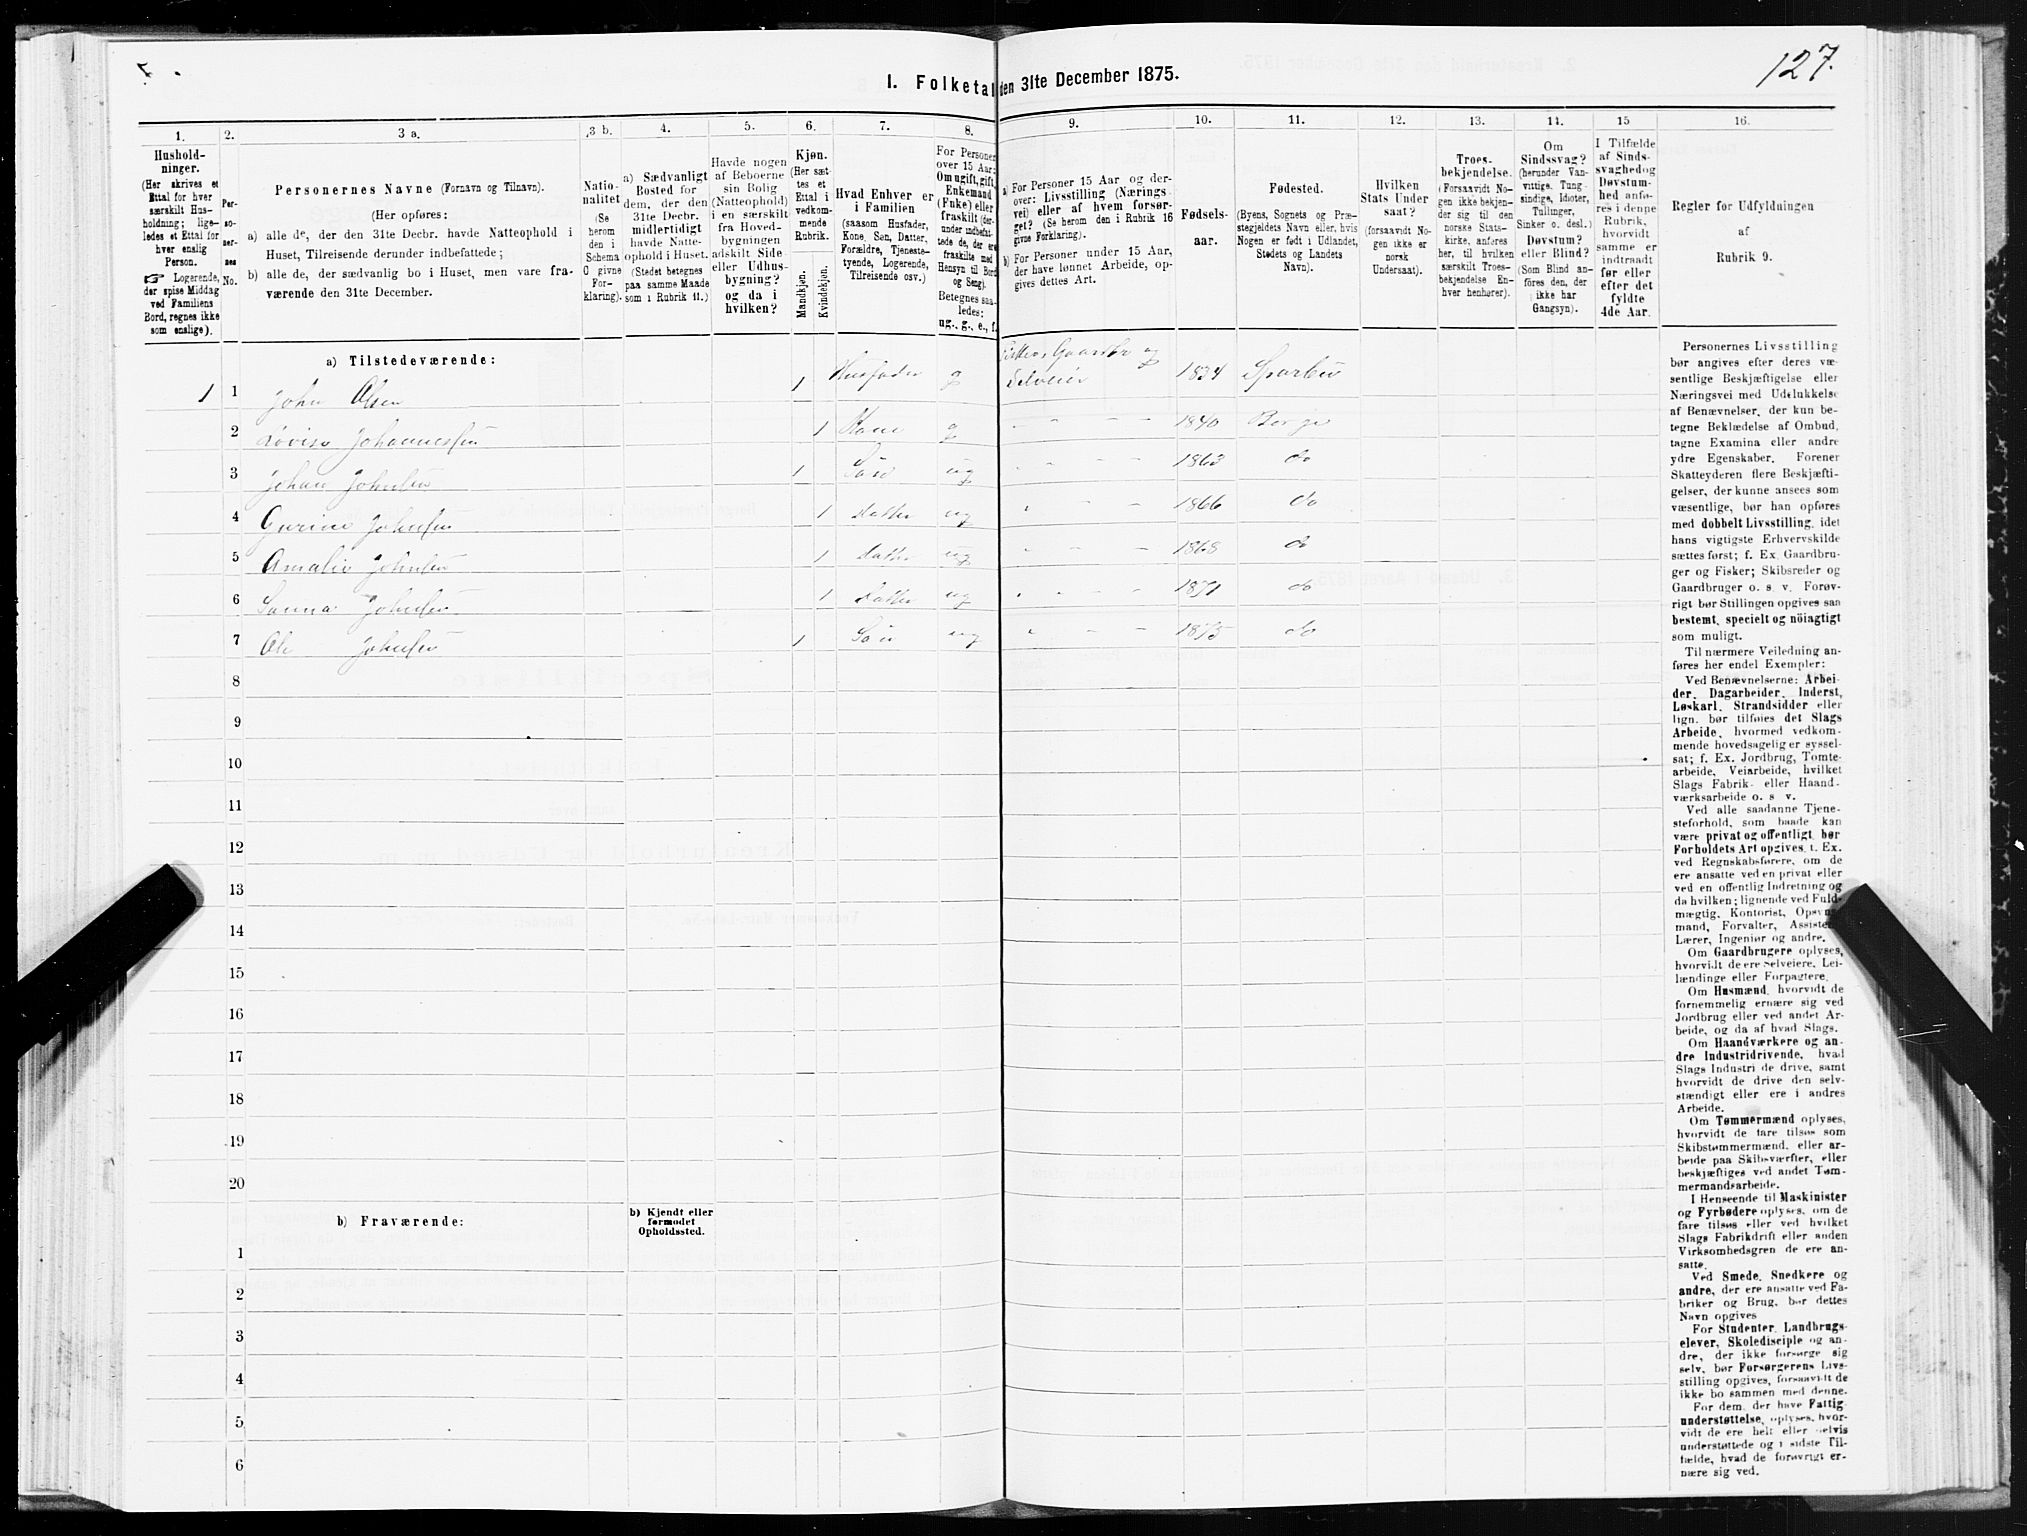 127.
I. Folketal den 31te December 1875.
1.
2.
3 a.
3 b.
4.
5.
6.
7.
8.
9.
10.
11.
12.
13.
14.
15
16.
Hushold-
ninger.
(Her skrives et
Ettal for hver
særskilt Hus-
holdning; lige-
ledes et Ettal for
hver enslig
Person.
☞ Logerende,
der spise Middag
ved Familiens
Bord, regnes ikke
som enslige).
Per-
so-
ner-
nes
No.
Personernes Navne (Fornavn og Tilnavn).
(Her opføres:
a) alle de, der den 31te Decbr. havde Natteophold i
Huset, Tilreisende derunder indbefattede;
b) alle de, der sædvanlig bo i Huset, men vare fra-
værende den 31te December.
Natio-
nalitet
(Se
herom
den i
Schema
O givne
For-
klaring).
a) Sædvanligt
Bosted for
dem, der den
31te Decbr.
midlertidigt
havde Natte-
ophold i Huset.
(Stedet betegnes
paa samme Maade
som i Rubrik 11.)
Havde nogen
af Beboerne
sin Bolig
(Natteophold)
i en særskilt
fra Hoved-
bygningen
adskilt Side
eller Udhus-
bygning?
og da i
hvilken?
Kjøn.
(Her sæt-
tes et
Ettal i
vedkom-
mende
Rubrik.
Mandkjøn.
Kvindekjøn.
Hvad Enhver er
i Familien
(saasom Husfader,
Kone, Søn, Datter,
Forældre, Tjeneste-
tyende, Logerende,
Tilreisende osv.)
For Personer
over 15 Aar:
Om ugift, gift,
Enkemand
(Enke) eller
fraskilt (der-
under indbefat-
tede de, der ere
fraskilte med
Hensyn til Bord
og Seng).
Betegnes saa-
ledes:
ug., g., e., f.
a) For Personer 15 Aar og der-
over: Livsstilling (Nærings-
vei) eller af hvem forsør-
get? (Se herom den i Rubrik 16
givne Forklaring).
b) For Personer under 15 Aar,
der have lønnet Arbeide, op-
gives dettes Art.
Fødsels-
aar.
Fødested.
(Byens, Sognets og Præ-
stegjeldets Navn eller, hvis
Nogen er født i Udlandet,
Stedets og Landets
Navn).
Hvilken
Stats Under
saat?
(forsaavidt No-
gen ikke er
norsk
Undersaat).
Troes-
bekjendelse.
(Forsaavidt No-
gen ikke bekjen-
der sig til den
norske Stats-
kirke, anføres
her, til hvilken
særskilt Troes-
bekjendelse En-
hver henhører).
Om
Sindssvag?
(herunder Van-
vittige, Tung-
sindige, Idioter,
Tullinger,
Sinker o. desl.)
Døvstum?
eller Blind?
(Som Blind an-
føres den, der
ikke har
Gangsyn).
I Tilfælde
af Sinds-
svaghed og
Døvstum-
hed anfø-
res i denne
Rubrik,
hvorvidt
samme er
indtraadt
før eller
efter det
fyldte
4de Aar.
Regler for Udfyldningen
af
Rubrik 9.
a) Tilstedeværende:
Gaardbr og
1 1 John Olsen 1 Husfader g Selveier 1834 Sparbu
2 Lovise Johannessen 1 Kone g " - - - 1840 Borge
3 Johan Johnsen 1 Søn ug " - - - 1863 do
4 Gurine Johnsen 1 Datter ug " - - 1866 do
5 Amalie Johnsen 1 Datter ug " - - - 1868 do
6 Sanna Johnsen 1 Datter ug " - - - 1871 do
7 Ole Johnsen 1 Søn ug " - - 1875 do
8
9
10
11
12
13
14
15
16
17
18
19
20
b) Fraværende:
b) Kjendt eller
formodet
Opholdssted.
1
2
3
4
5
6
Personernes Livsstilling
bør angives efter deres væ-
sentlige Beskjæftigelse eller
Næringsvei med Udelukkelse
af Benævnelser, der kun be-
tegne Beklædelse af Ombud,
tagne Examina eller andre
ydre Egenskaber. Forener
Skatteyderen flere Beskjæfti-
gelser, der kunne ansees som
væsentlige, bør han opføres
med dobbelt Livsstilling, idet
hans vigtigste Erhvervskilde
sættes først; f. Ex. Gaardbru-
ger og Fisker; Skibsreder og
Gaardbruger o. s. v. Forøv-
rigt bør Stillingen opgives saa
bestemt, specielt og nöiagtigt
som muligt.
Til nærmere Veiledning an-
føres her endel Exempler:
Ved Benævnelserne: Arbei-
der, Dagarbeider, Inderst,
Løskarl, Strandsidder eller
lign. bør tilføies det Slags
Arbeide, hvormed vedkom-
mende hovedsagelig er syssel-
sat; f. Ex. Jordbrug, Tomte-
arbeide, Veiarbeide, hvilket
Slags Fabrik- eller Haand-
værksarbeide o. s v.
Ved alle saadanne Tjene-
steforhold, som baade kan
være privat og offentligt, bør
Forholdets Art opgives, f. Ex.
ved Regnskabsførere, om de
ere ansatte ved en privat eller
ved en offentlig Indretning og
da hvilken; lignende ved Fuld-
mægtig, Kontorist, Opsyns-
mand, Forvalter, Assistent,
Lærer, Ingeniør og andre.
Om Gaardbrugere oplyses,
hvorvidt de ere Selveiere, Lei-
lændinge eller Forpagtere.
Om Husmænd, hvorvidt de
fornemmelig ernære sig ved
Jordbrug eller ved andet Ar-
beide, og da af hvad Slags.
Om Haandværkere og an-
dre Industridrivende, hvad
Slags Industri de drive, samt
hvorvidt de drive den selv-
stændigt eller ere i andres
Arbeide.
Om Tømmermænd oplyses,
hvorvidt de fare tilsøs som
Skibstømmermænd, eller ar-
beide paa Skibsværfter, eller
beskjæftiges ved andet Tøm-
mermandsarbeide.
I Henseende til Maskinister
og Fyrbødere oplyses, om de
fare tilsøs eller ved hvilket
Slags Fabrikdrift eller anden
Virksomhedsgren de ere an-
satte.
Ved Smede, Snedkere og
andre, der ere ansatte ved Fa-
briker og Brug, bør dettes
Navn opgives
For Studenter, Landbrugs-
elever, Skoledisciple og an-
dre, der ikke forsørge sig
selv, bør Forsørgerens Livs-
stilling opgives, forsaavidt de
ikke bo sammen med denne.
For dem, der have Fattig-
understøttelse, oplyses, hvor-
vidt de ere helt eller delvis
understøttede og i sidste Til-
fælde, hvad de forøvrigt er-
nære sig ved.